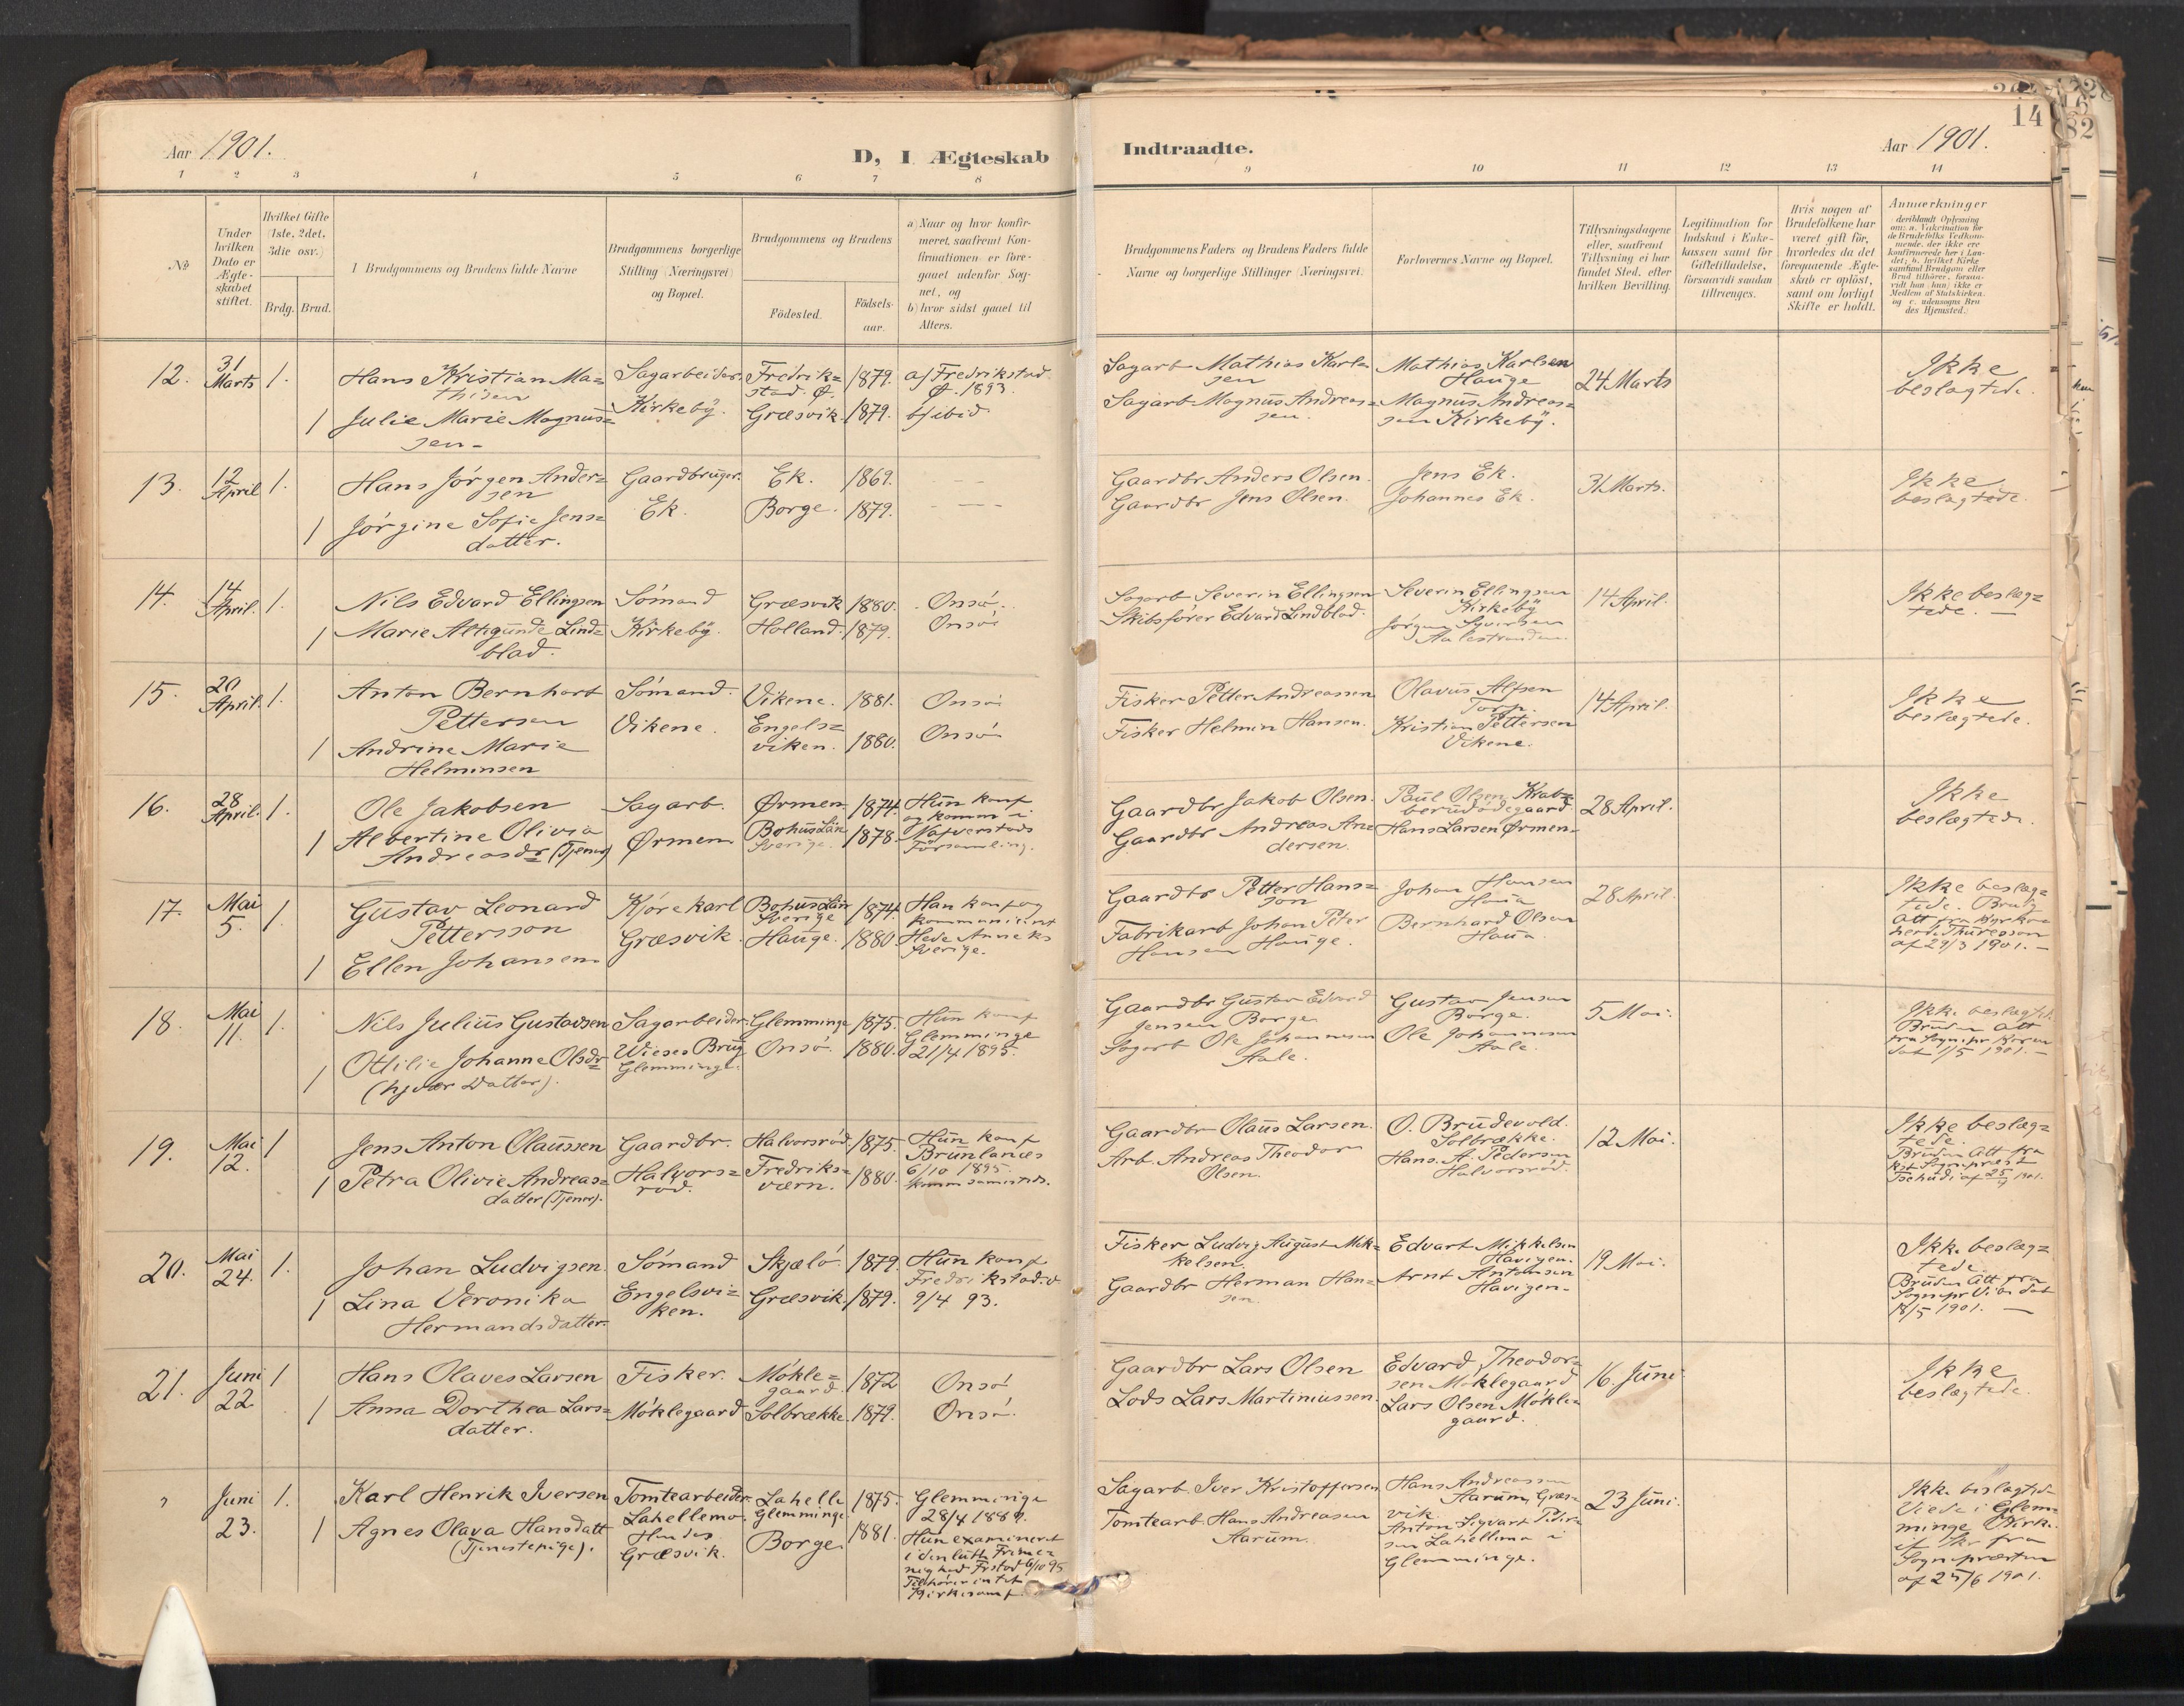 Aar 1901.
D, I Ægteskab
Indtraadte.
Aar 1901.
14
82
1 2 3 4 5 6 7 8
9 10 11 12 13 14
No
Under hvilken Dato er Ægteskabet stiftet.
Hvilket Gifte (1ste, 2det, 3die osv.)
Brdg. Brud.
1 Brudgommens og Brudens fulde Navne
Brudgommens borgerlige Stilling (Næringsvei) og Bopæl.
Brudgommens og Brudens
Födested.
Födselsaar.
a) Naar og hvor konfirmeret, saafremt Konfirmationen er foregaaet udenfor Sognet, og
b) hvor sidst gaaet til Alters.
Brudgommens Faders og Brudens Faders fulde Navne og borgerlige Stillinger (Næringsvei).
Forlovernes Navne og Bopæl.
Tillysningsdagene eller, saafremt Tillysning ei har fundet Sted, efter hvilken Bevilling.
Legitimation for Indskud i Enkekassen samt for Giftetilladelse, forsaavidt saadan tiltrænges.
Hvis nogen af Brudefolkene har været gift för, hvorledes da det foregaaende Ægteskab er oplöst, samt om lovligt Skifte er holdt.
Anmærkninger
deriblandt Oplysning om: a. Vakcination for de Brudefolks Vedkommende, der ikke ere konfirmerede her i Landet; b. hvilket Kirkesamfund Brudgom eller Brud tilhörer, forsaavidt han (hun) ikke er Medlem af Statskirken, og c. udensogns Brudes Hjemsted.)
12. 31 Marts 1.
Hans Kristian Ma=
thisen
1 Julie Marie Magnus=
sen
Sagarbeider.
Kirkeby.
Fredrik=
stad. Ø. 1879.
Græsvik. 1879.
a/ Fredrikstad
Ø. 1893.
b/ ibid.
Sagarb Mathias Karl=
sen
Sagarb Magnus Andreas=
sen.
Mathias Karlsen
Hauge
Magnus Andreas=
sen Kirkeby.
24 Marts
Ikke
beslægtede.
13. 12 April 1.
Hans Jørgen Ander=
sen
1 Jørgine Sofie Jens=
datter.
Gaardbruger.
Ek.
Ek. 1869.
Borge. 1879.
Gaardbr Anders Olsen.
Gaardbr Jens Olsen.
Jens Ek.
Johannes Ek.
31 Marts.
Ikke
beslægtede.
14. 14 April. 1.
Nils Edvard Ellingsen
1 Marie Altigunde Lind=
blad.
Sømand
Kirkeby.
Græsvik 1880.
Holland. 1879.
Onsø.
Onsø
Sagarb Severin Ellingsen
Skibsfører Edvard Lindblad.
Severin Ellingsen
Kirkeby
Jørgen Syversen
Aalestranden.
14 April.
Ikke beslæg=
tede. —
15. 20 April. 1.
Anton Bernhart
Pettersen
1 Andrine Marie
Helminsen
Sømand.
Vikene.
Vikene. 1881.
Engels=
viken. 1880.
Onsø
Onsø
Fisker Petter Andreassen
Fisker Helmin Hansen.
Olavus Alfsen
Torp.
Kristian Pettersen
Vikene.
14 April.
Ikke
beslægtede.
16. 28 April. 1.
Ole Jakobsen
1 Albertine Olivia
Andreasdr (Tjener)
Sagarb.
Ørmen
Ørmen 1874.
Bohuslän
Sverige. 1878.
Hun konf
og komm i
Nafverstads
Församling.
Gaardbr Jakob Olsen.
Gaardbr Andreas An=
dersen.
Paul Olsen Krab=
berudødegaard
Hans Larsen Ørmen.
28 April.
Ikke
beslægtede.
17. Mai 5. 1.
Gustav Leonard
Pettersson
1 Ellen Johansen
Kjørekarl
Græsvik.
Bohuslän
Sverige 1874.
Hauge. 1880.
Han konf og
kommunicint
Hede Anneks
Sverige.
Gaardbr Petter Hans=
son
Fabrikarb Johan Peter
Hansen Hauge.
Johan Hansen
Haua
Bernhard Olsen
Haua.
28 April.
Ikke beslæg=
tede. Brudg
Att fra Kyrko
herde Thuresson
af 29/3 1901. —
18. Mai 11. 1.
Nils Julius Gustavsen
1 Othilie Johanne Olsdr
(hjvær Datter).
Sagarbeider.
Wieses Brug
Glemminge.
Glemminge 1875.
Onsø. 1880.
Hun konf
Glemminge
21/4 1895.
Gaardbr Gustav Edvard
Jensen Borge
Sagarb Ole Johannesen
Aale.
Gustav Jensen
Borge.
Ole Johannesen
Aale.
5 Mai.
Ikke beslægtet.
Bruden Att
fra Sognepr Koren
dat 1/5 1901. —
19. Mai 12. 1
Jens Anton Olaussen
1 Petra Olivie Andreas=
datter (Tjener).
Gaardbr.
Halvors=
rød.
Halvorsrød. 1875.
Fredriks=
værn. 1880.
Hun konf
Brunlanæs
6/10 1895.
komm sammesteds.
Gaardbr Olaus Larsen.
Arb. Andreas Theodor
Olsen.
O. Brudevold.
Solbrække.
Hans. A. Pedersen
Halvorsrød.
12 Mai.
Ikke beslæg=
tede.
Bruden Att fra
kst Sognepræst
Tschudi af 25/4 1901.
20. Mai 24. 1.
Johan Ludvigsen
1 Lina Veronika
Hermandsdatter.
Sømand
Engelsvi=
ken.
Skjælø. 1879.
Græsvik. 1879.
Hun konf
Fredrikstad. v
9/4 93.
Fisker Ludvig August Mik=
kelsen.
Gaardbr Herman Han=
sen.
Edvart Mikkelsen
Havigen.
Arnt Antonsen
Havigen.
19 Mai.
Ikke beslæg=
tede
Bruden Att fra
Sognepr Vibe dat
18/5 1901. —
21. Juni 22. 1
Hans Olaves Larsen
1 Anna Dorthea Lars=
datter.
Fisker.
Møklegaard
Møkle=
gaard. 1872
Solbrække. 1879.
Onsø
Onsø.
Gaardbr Lars Olsen
Lods Lars Martiniussen.
Edvard Theodor=
sen Møklegaard
Lars Olsen Møkle=
gaard.
16. Juni.
Ikke
beslægtede.
Juni 23. 1.
Karl Henrik Iversen
1 Agnes Olava Hansdatt
(Tjenestepige).
Tomtearbeider.
Lahellemo.
Hendes
Græsvik.
Lahelle
Glemminge. 1875.
Borge 1881.
Glemminge
28/4 1889.
Hun examineret
i den luth Frime=
nighed Frstad 6/10 95
Tilhører intet
Kirkesamf.
Sagarb. Iver Kristoffersen
Tomtearb. Hans Andreasen
Aarum.
Hans Andreassen
Aarum, Græs=
vik.
Anton Sigvart Peder=
sen Lahellemo i
Glemminge.
23 Juni.
Ikke beslægtede
Viede i Glem=
minge Kirke
fra
Sognepræsten
af 25/6 1901.